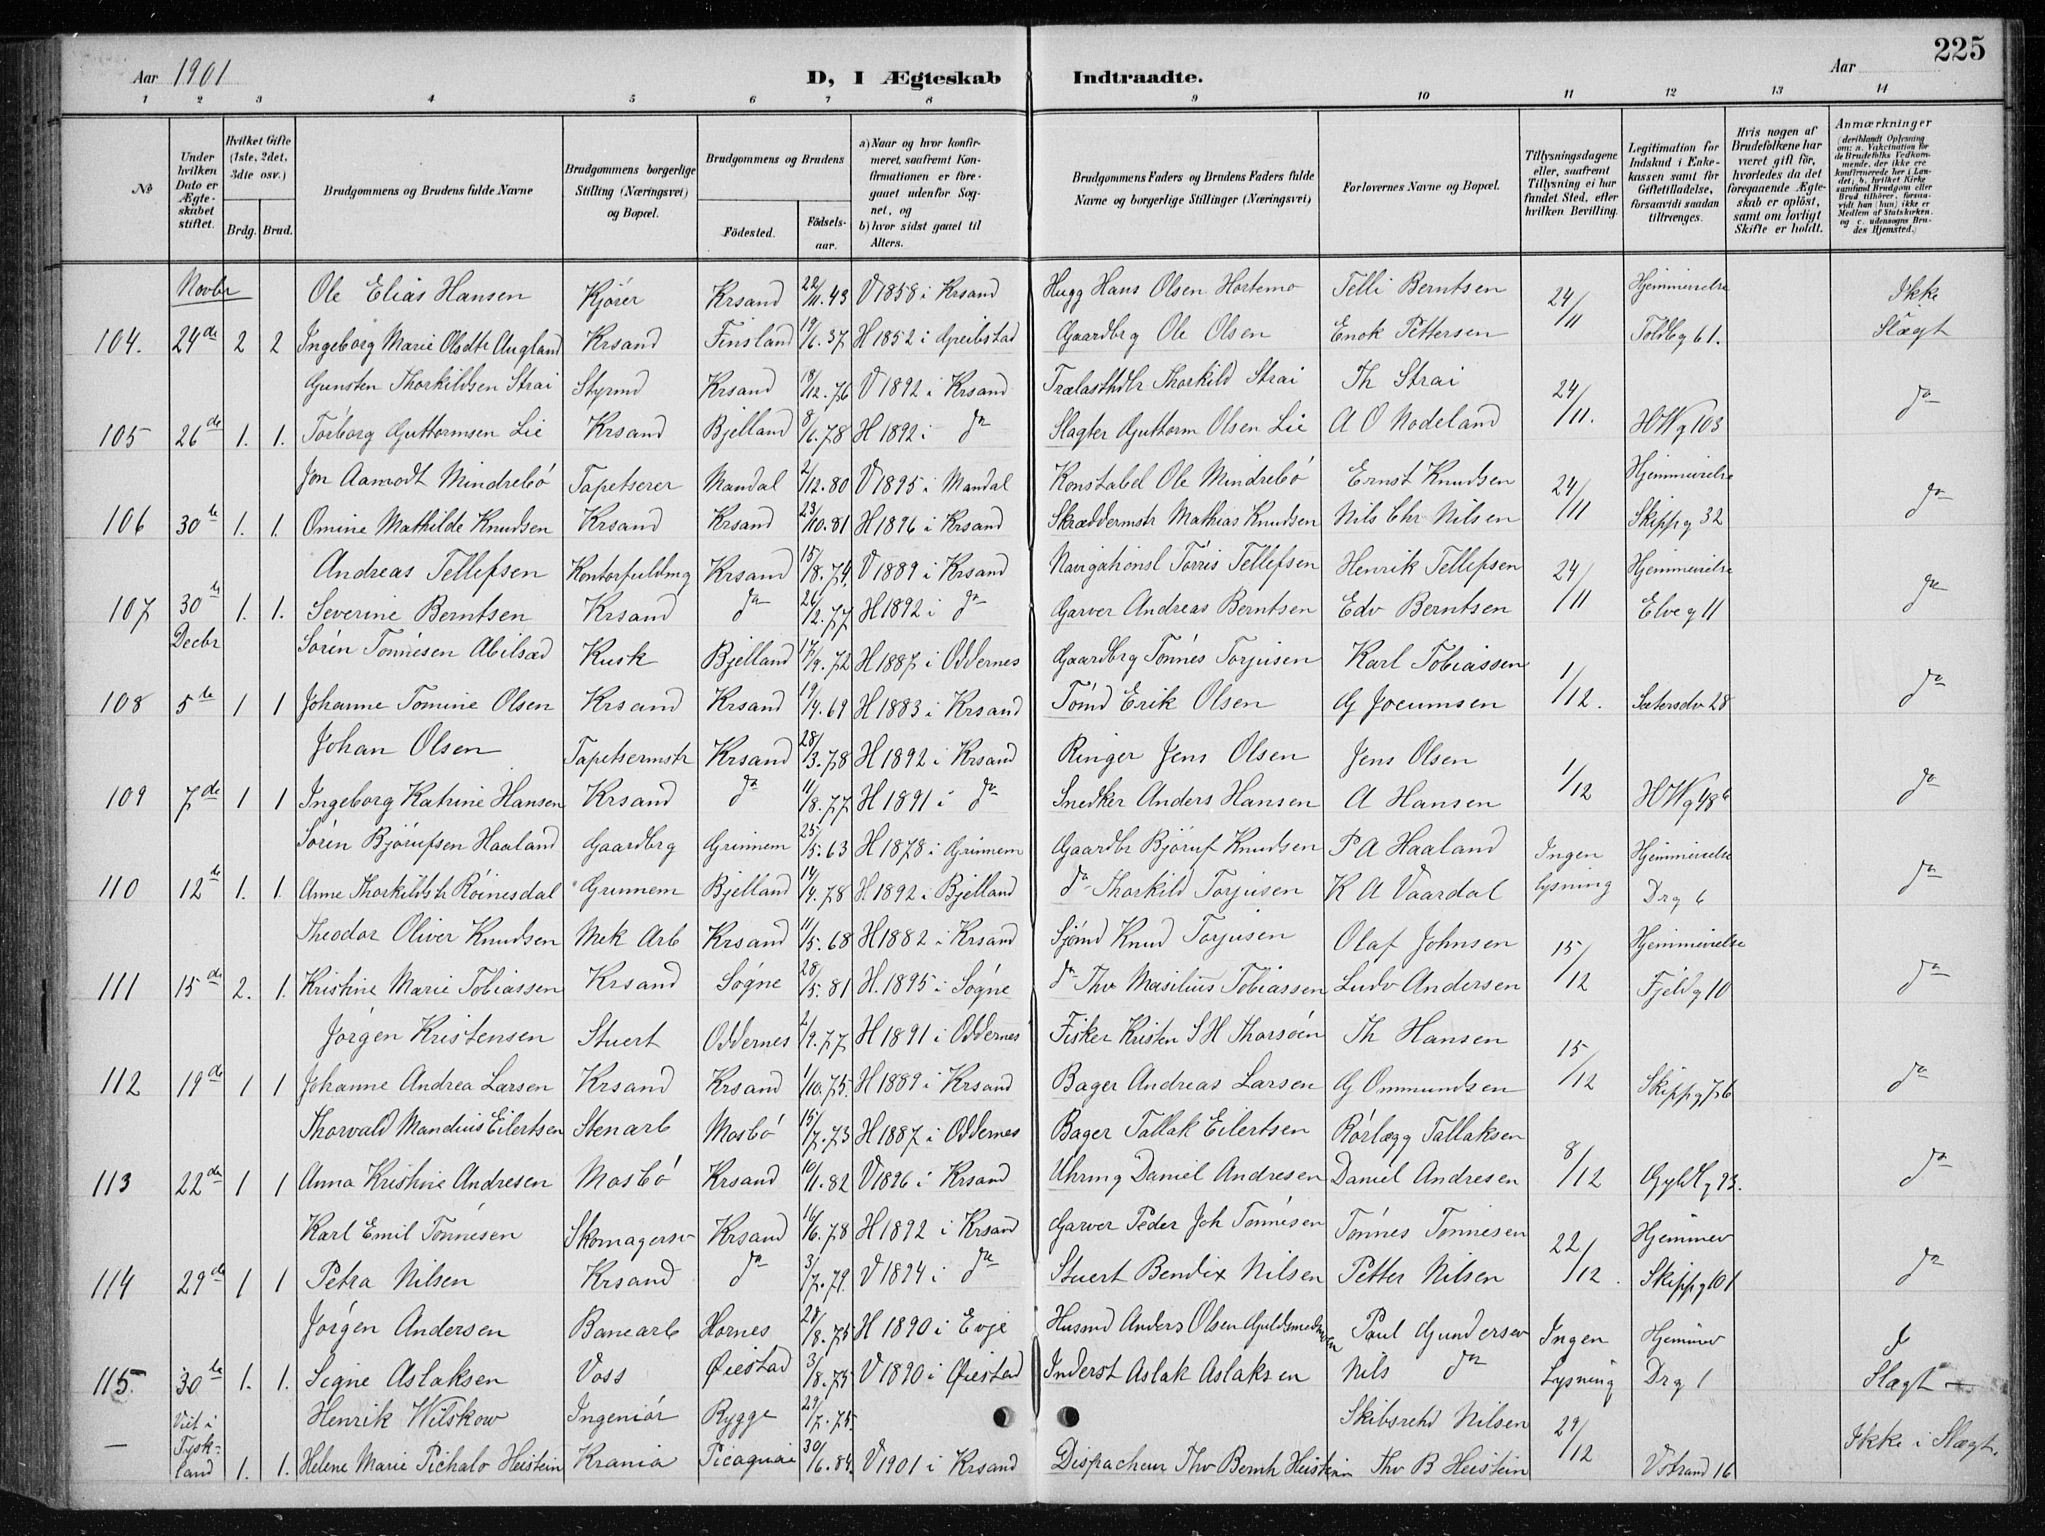 225
Aar 1901
D, I Ægteskab Indtraadte.
Aar
1 2 3 4 5 6 7 8 9 10 11 12 13 14
No
Under hvilken Dato er Ægteskabet stiftet.
Hvilket Gifte (1ste, 2det, 3dte osv.)
Brdg. Brud.
Brudgommens og Brudens fulde Navne
Brudgommens borgerlige Stilling (Næringsvei) og Bopæl.
Brudgommens og Brudens
Födested.
Födselsaar.
a) Naar og hvor konfirmeret, saafremt Konfirmationen er foregaaet udenfor Sognet, og
b) hvor sidst gaaet til Alters.
Brudgommens Faders og Brudens Faders fulde Navne og borgerlige Stillinger (Næringsvei)
Forlovernes Navne og Bopæl.
Tillysningsdagene eller, saafremt Tillysning ei har fundet Sted, efter hvilken Bevilling.
Legitimation for Indskud i Enkekassen samt for Giftetilladelse, forsaavidt saadan tiltrænges.
Hvis nogen af Brudefolkene har været gift för, hvorledes da det foregaaende Ægteskab er oplöst, samt om lovligt Skifte er holdt.
Anmærkninger
(deriblandt Oplysning om: a. Vakcination for de Brudefolks Vedkommende, der ikke ere konfirmerede her i Landet, b. hvilket Kirkesamfund Brudgom eller Brud tilhörer, forsaavidt han (hun) ikke er Medlem af Statskirken, og c. udensogns Brudes Hjemsted.)
Novbr Ole Elias Hansen Kjörer Krsand 22/11.43 V 1858 i Krsand Hugg Hans Olsen Hortemo Telli Berntsen 24/11 Hjemmevielse Ikke
104. 24de 2 2 Ingeborg Marie Olsdtr Augland Krsand Finsland 19/6.37 H 1852 i Greibstad Gaardbrg Ole Olsen Enok Pettersen Toldbg 61. Slægt
Gunsten Thorkildsen Strai Styrmd Krsand 18/12.76 V 1892 i Krsand Trælasthdlr Thorkild Strai Th Strai 24/11. do
105 26de 1. 1. Torborg Guttormsen Lie Krsand Bjelland 8/6.78 H 1892 i do Slagter Guttorm Olsen Lie A O Nodeland HWg 103
Jon Aamodt Mindrebö Tapetserer Mandal 2/12.80 V 1895 i Mandal Konstabel Ole Mindrebö Ernst Knudsen 24/11 Hjemmevielse do
106 30te 1. 1. Omine Mathilde Knudsen Krsand Krsand 23/10.81 H 1896 i Krsand Skræddermstr Mathias Knudsen Nils Chr Nilsen Skippg 32
Andreas Tellefsen Kontorfuldmg Krsand 15/8.74. V 1889 i Krsand Navigationsl Törris Tellefsen Henrik Tellefsen 24/11 Hjemmevielse do
107 30te 1. 1. Severine Berntsen Krsand do 26/2.77 H 1892 i do Garver Andreas Berntsen Edv Berntsen Elveg 11
Decbr Sörin Tönnesen Abilsød Kusk Bjelland 17/9.72 H 1887 i Oddernes Gaardbrg Tönnes Torjusen Karl Tobiassen 1/12. do
108 5te 1 1 Johanne Tomine Olsen Krsand Krsand 19/4.69 H 1883 i Krsand Tömd Erik Olsen G Jocumsen Setersdv 28
Johan Olsen Tapetsermstr Krsand 28/3.78 H 1892 i Krsand Ringer Jens Olsen Jens Olsen 1/12 do
109 7de 1 1 Ingeborg Katrine Hansen Krsand do 11/8.77 H 1891 i do Snedker Anders Hansen A Hansen HWg 48b
Sörin Björufsen Haaland Gaardbrg Grinnem 25/5.63 H 1878 i Grinnem Gaardbr Björuf Knudsen P A Haaland Ingen lysning Hjemmevielse do
110 12te 1. 1. Anne Thorkildsdtr Röinesdal Grinnem Bjelland 14/4.78 H 1892 i Bjelland do Thorkild Torjusen K A Vaardal Drg 6
Theodor Oliver Knudsen Mek Arb Krsand 11/5.68 H 1882 i Krsand Sjömd Knud Torjusen Olaf Johnsen 15/12 Hjemmevielse do
111 15de 2. 1. Kristine Marie Tobiassen Krsand Sögne 28/5.81 H. 1895 i Sögne do Thv Masilius Tobiassen Ludv Andersen Fjeldg 10
Jörgen Kristensen Stuert Oddernes 2/9.77 H 1891 i Oddernes Fisker Kristen S H Thorsöen Th Hansen 15/12 do
112 19de 1 1 Johanne Andrea Larsen Krsand Krsand 1/10.75. H 1889 i Krsand Bager Andreas Larsen G Ommundsen Skippg 76
Thorvald Mandius Eilertsen Stenarb Mosbö 15/7.73 H 1887 i Oddernes Bager Tallak Eilertsen Rörlægg Tallaksen 8/12 do
113 22de 1 1 Anna Kristine Andresen Mosbö Krsand 10/11.82 V 1896 i Krsand Uhrmg Daniel Andresen Daniel Andresen Gyldlg 93.
Karl Emil Tönnesen Skomagersv Krsand 16/6.78 H 1892 i Krsand Garver Peder Joh Tönnesen Tönnes Tönnesen 22/12. Hjemmev do
114 29de 1 1 Petra Nilsen Krsand do 3/7.79. V 1894 i do Stuert Bendix Nilsen Petter Nilsen Skippg 101
Jörgen Andersen Banearb Hornes 28/8.75 H 1890 i Evje Husmd Anders Olsen Guldsmedmoen Paul Gundersen Ingen Lysning Hjemmev
115. 30te 1. 1. Signe Aslaksen Voss Øiestad 3/8.75 V 1890 i Øiestad Inderst Aslak Aslaksen Nils do Drg 1 Slægt
Viet i Tyskland Henrik Wilskow Ingeniör Rygge 29/7.75. Skibsrehd Nilsen 29/12 Ikke i Slægt.
— 1. 1. Helene Marie Pichalo Heistein Krania Picaguai 30/6.84. V 1901 i Krsand Dispacheur Thv Bernh Heistein Thv B Heistein Vstrand 16